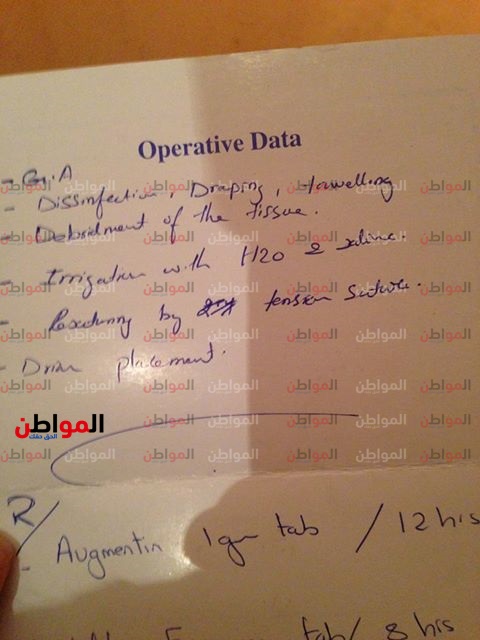 Operative Data
- G.A
- Dissinfection, Draping, towelling
- Debridment of the tissue.
- Irrigation with H2O & saline.
- by tension suture.
- Drain placement.
المواطن
الحق معك
R/
- Augmentin 1gm tab / 12 hrs
tab/ 8 hrs